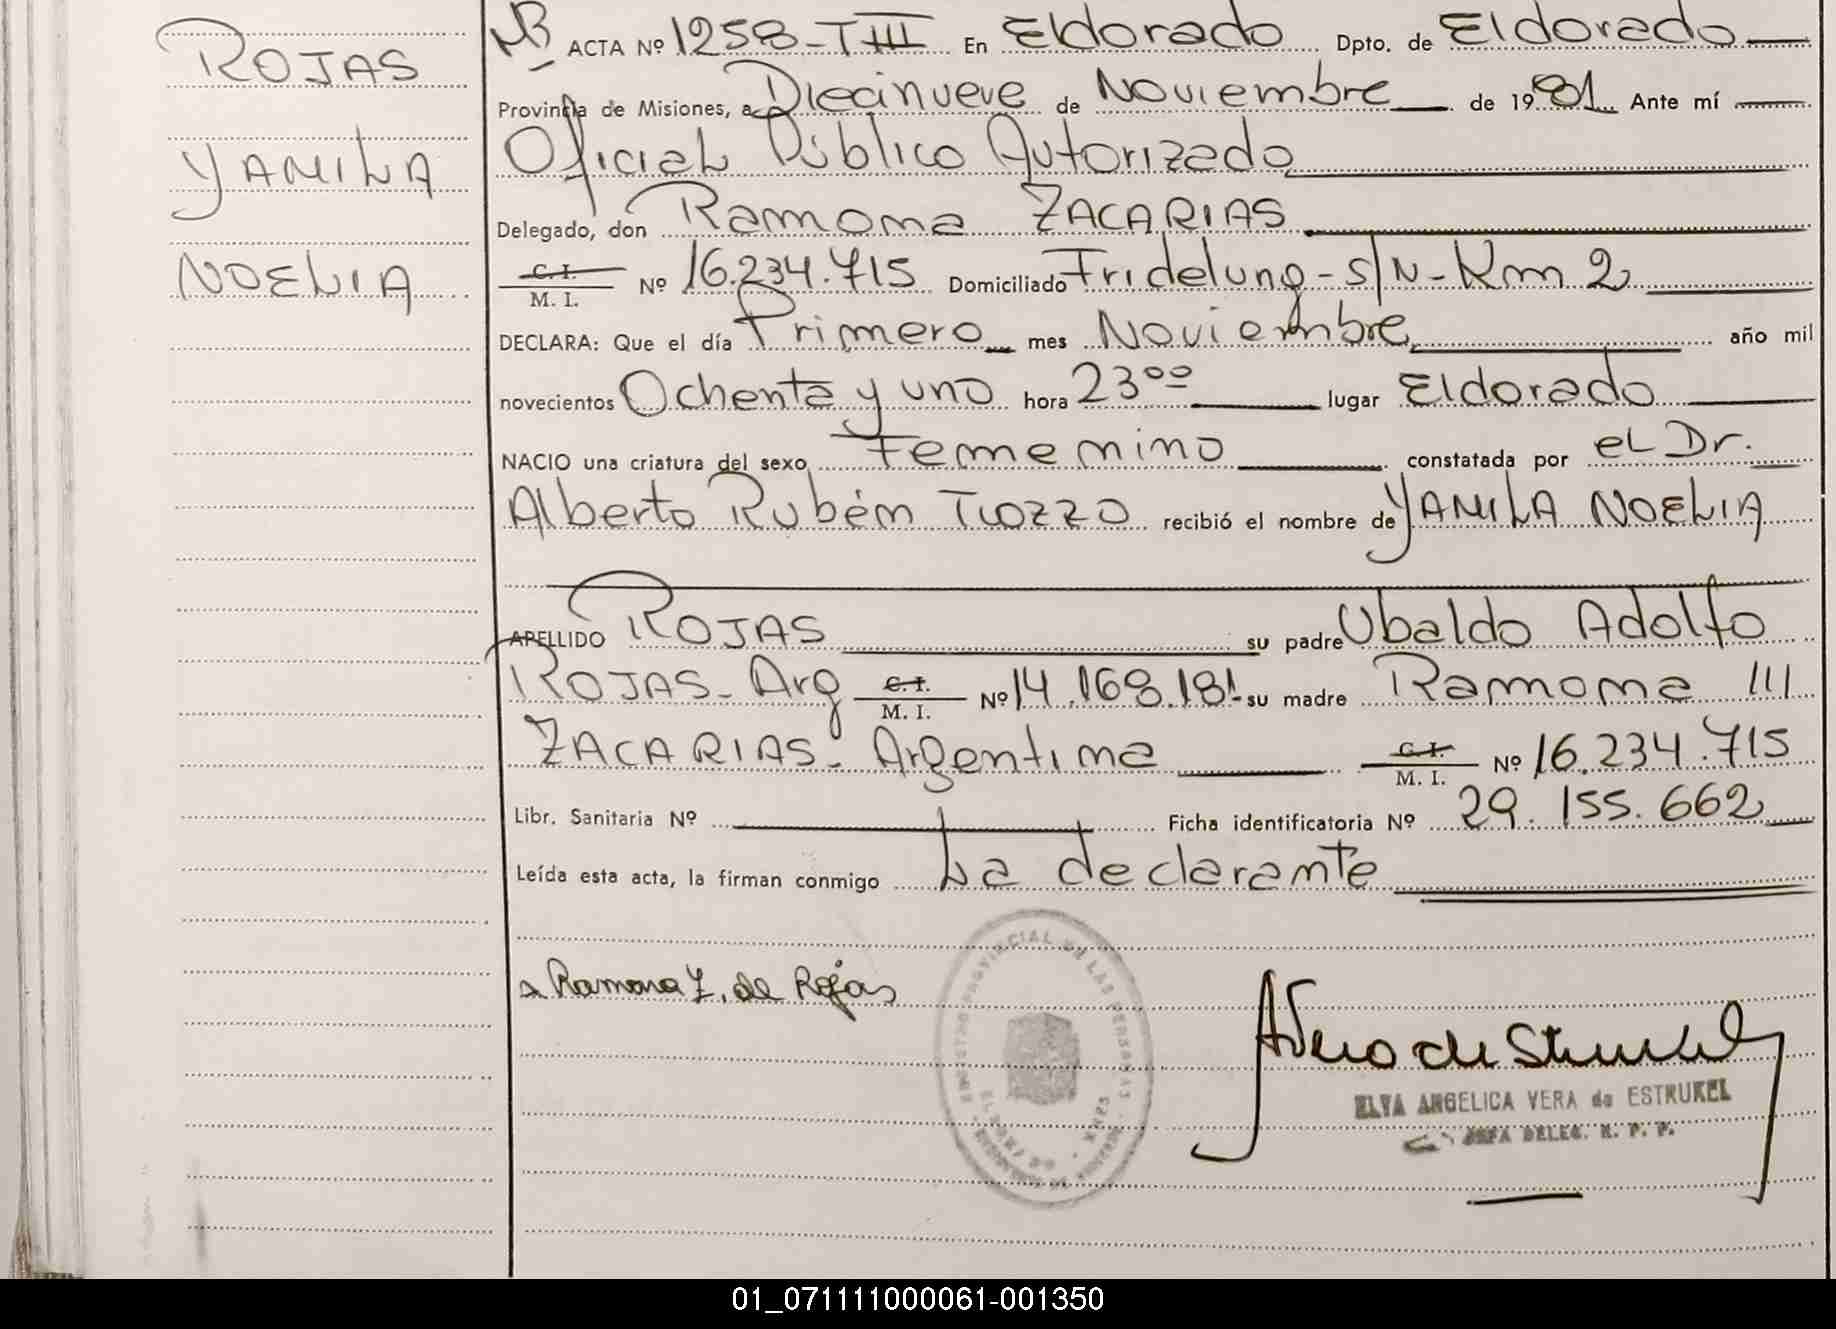 ROJAS
YAMILA
NOELIA
ACTA Nº 1258-TIII En Eldorado Dpto. de Eldorado
Provincia de Misiones, a Diecinueve de Noviembre de 1981 Ante mí
Oficial Público Autorizado
Delegado, don Ramona ZACARIAS
C. I. / M. I. Nº 16.234.715 Domiciliado Fridelung-S/N-Km 2
DECLARA: Que el día Primero mes Noviembre año mil
novecientos Ochenta y uno hora 23⁰⁰ lugar Eldorado
NACIO una criatura del sexo Femenino constatada por el Dr.
Alberto Rubén Tiozzo recibió el nombre de YAMILA NOELIA
APELLIDO ROJAS su padre Ubaldo Adolfo
ROJAS-Arg C. I. / M. I. Nº 14.168.181 su madre Ramona
ZACARIAS-Argentina C. I. / M. I. Nº 16.234.715
Libr. Sanitaria Nº Ficha identificatoria Nº 29.155.662
Leída esta acta, la firman conmigo La declarante
Ramona Z. de Rojas
REGISTRO PROVINCIAL DE LAS PERSONAS
ELDORADO
ELVA ANGELICA VERA de ESTRUKEL
JEFA DELEG. R. P. P.
01_071111000061-001350